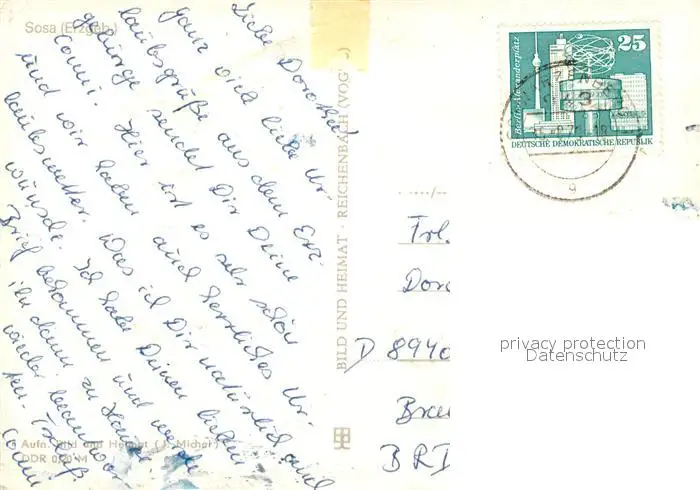 Sosa (Erzgeb.)
Liebe Dorothea!
ganz viele liebe Ur-
laubsgrüße aus dem Erz-
gebirge sendet Dir Deine
Conni. Hier ist es sehr schön
und wir haben auch herrliches Ur-
laubswetter. Was ich Dir natürlich auch
wünsche. Ich habe Deinen lieben
Brief bekommen und werde
ihn dann zu Hause
wieder beantwor-
ten. Tschüß.
Conni
Aufn. Bild und Heimat (J. Michel)
DDR 0,20 M
BILD UND HEIMAT · REICHENBACH (VOGTL)
Berlin-Alexanderplatz
25
DEUTSCHE DEMOKRATISCHE REPUBLIK
a
Frl.
Doro
D 8940
BRD
privacy protection
Datenschutz